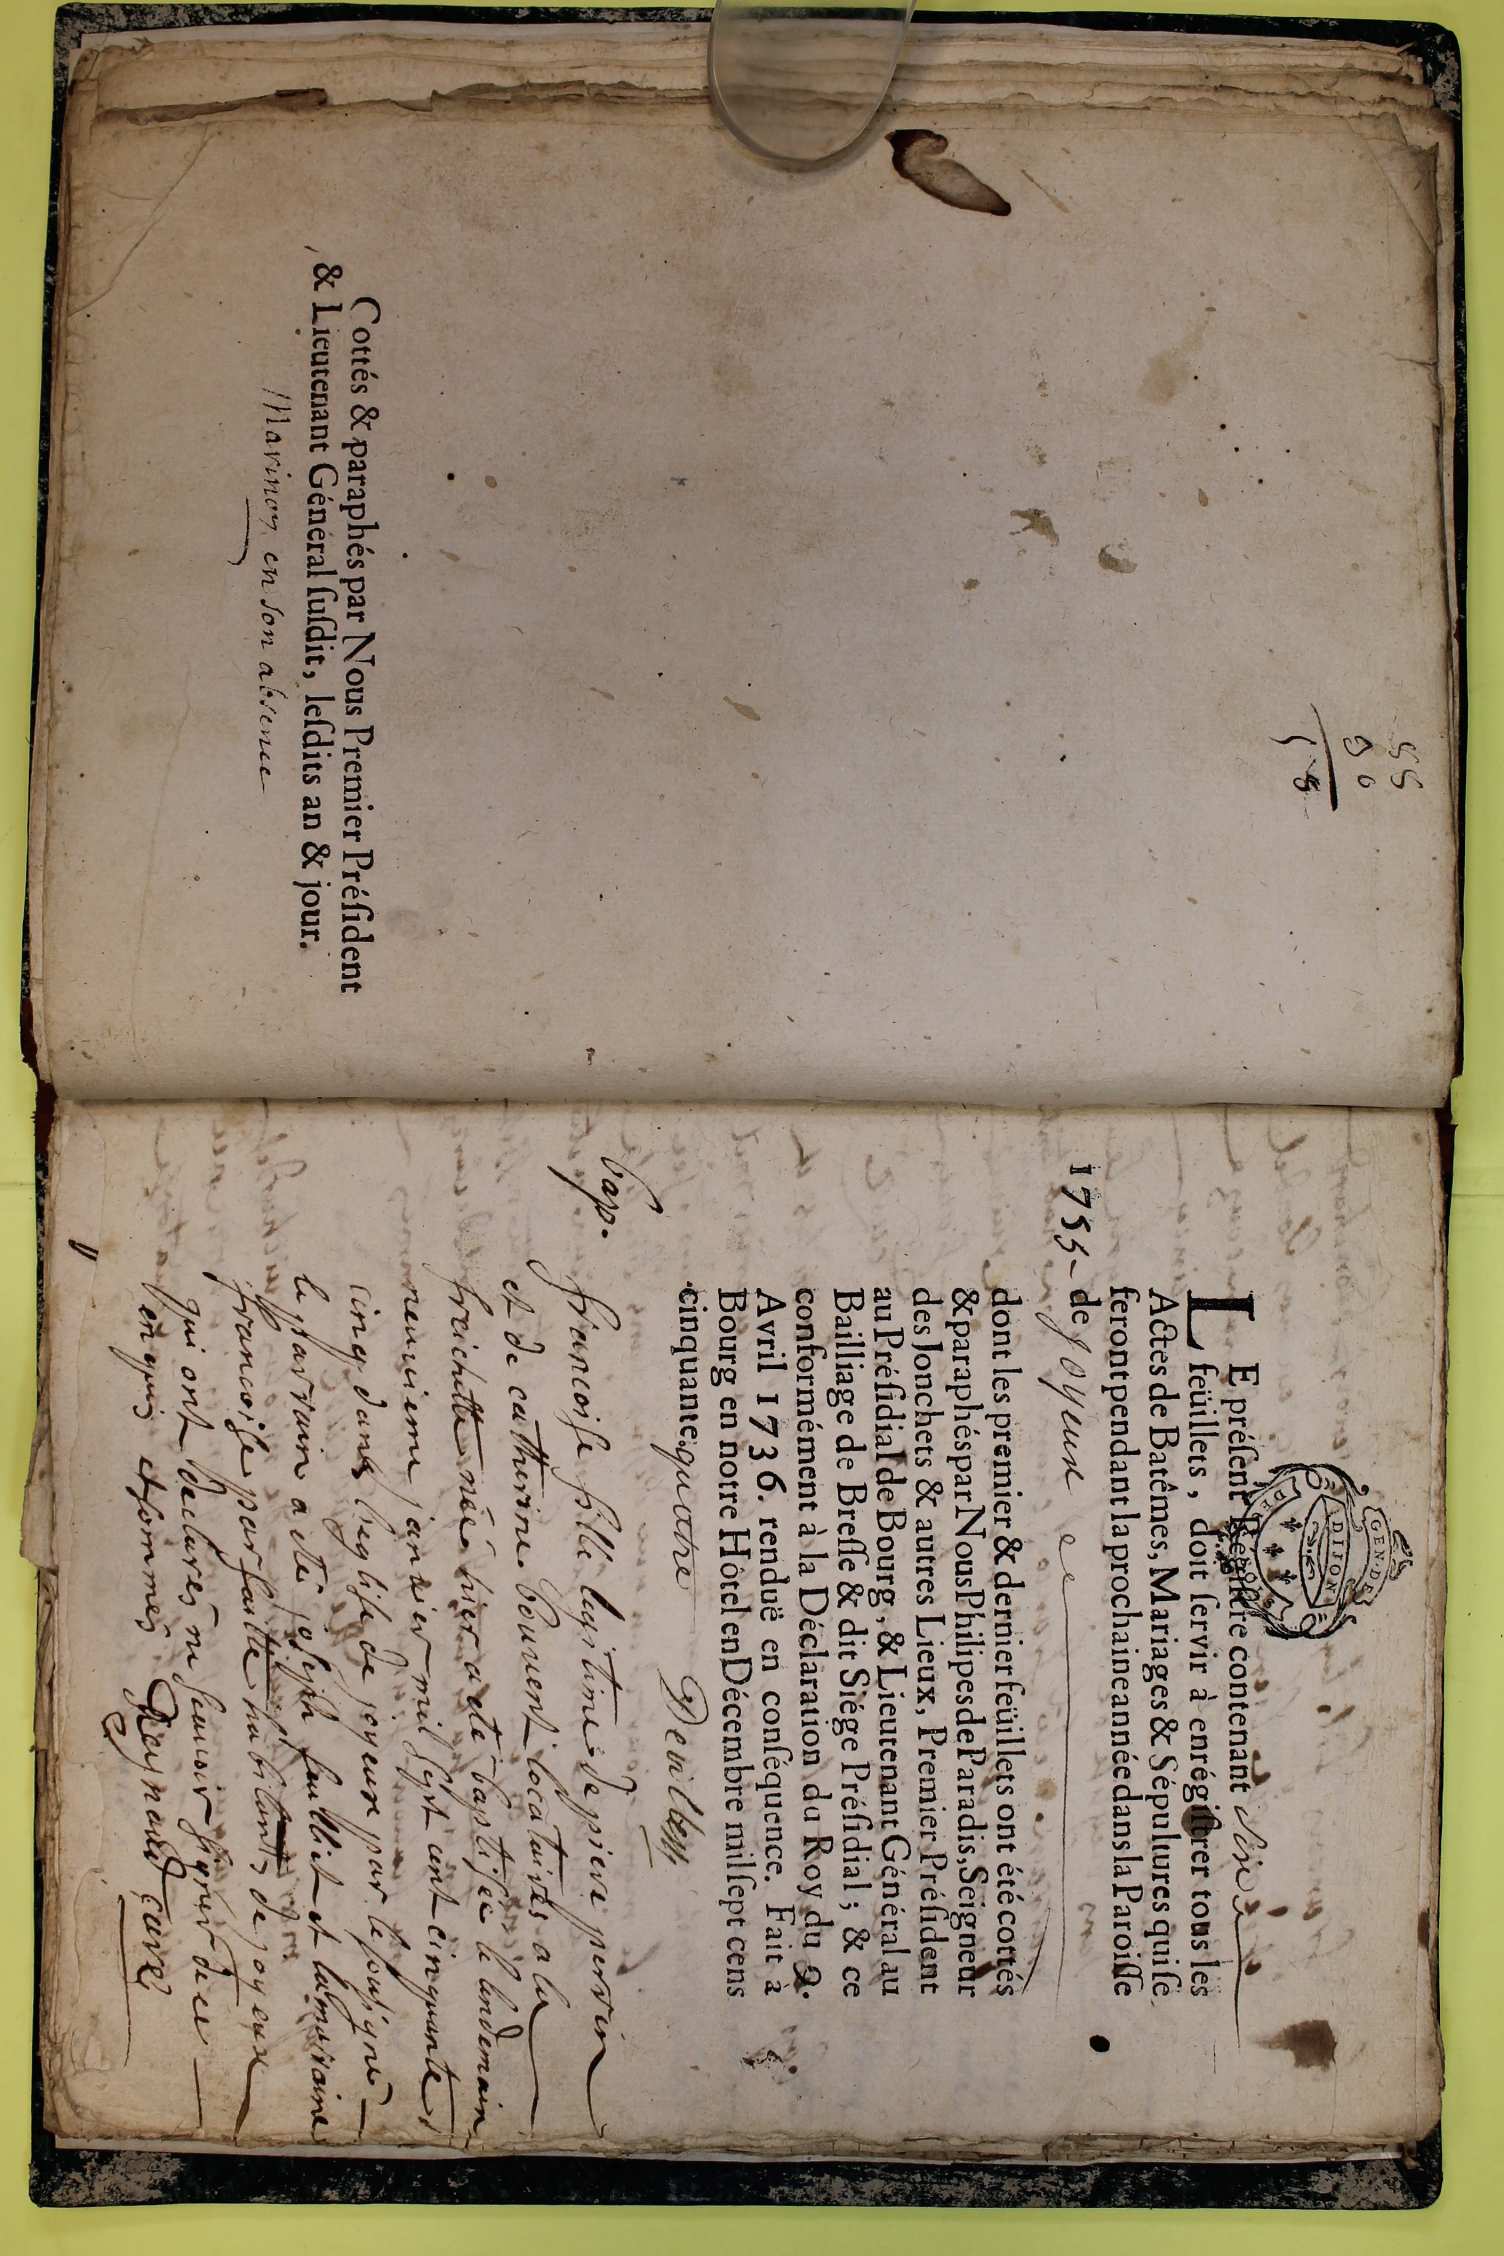 55
30
15
Cottés & paraphés par Nous Premier Préſident
& Lieutenant Général ſuſdit, leſdits an & jour.
Marinon en son absence
GEN·DE
DIJON
LE préſent Régiſtre contenant Six
feüillets, doit ſervir à enrégiſtrer tous les
Actes de Batêmes, Mariages & Sépultures qui ſe
feront pendant la prochaine année dans la Paroiſſe
1755 - de joyeux
dont les premier & dernier feüillets ont été cottés
& paraphés par Nous Philipes de Paradis, Seigneur
des Jonchets & autres Lieux, Premier Préſident
au Préſidial de Bourg, & Lieutenant Général au
Bailliage de Breſſe & dit Siége Préſidial; & ce
conformément à la Déclaration du Roy du 9.
Avril 1736. renduë en conſéquence. Fait à
Bourg en notre Hôtel en Décembre mil ſept cens
cinquante quatre
bap.
francoise fille legitime de pierre perrin
et de catherine bouvent locataires a la
fraichette née hier a eté baptisée le lendemain
neuvieme janvier mil sept cent cinquante
cinq dans l'eglise de joyeux par le sousigné
le parrain a eté joseph et la marraine
francoise parfaitte habitants de joyeux
qui ont declarés ne sçavoir signer de ce
enquis et sommés Reynaud curé